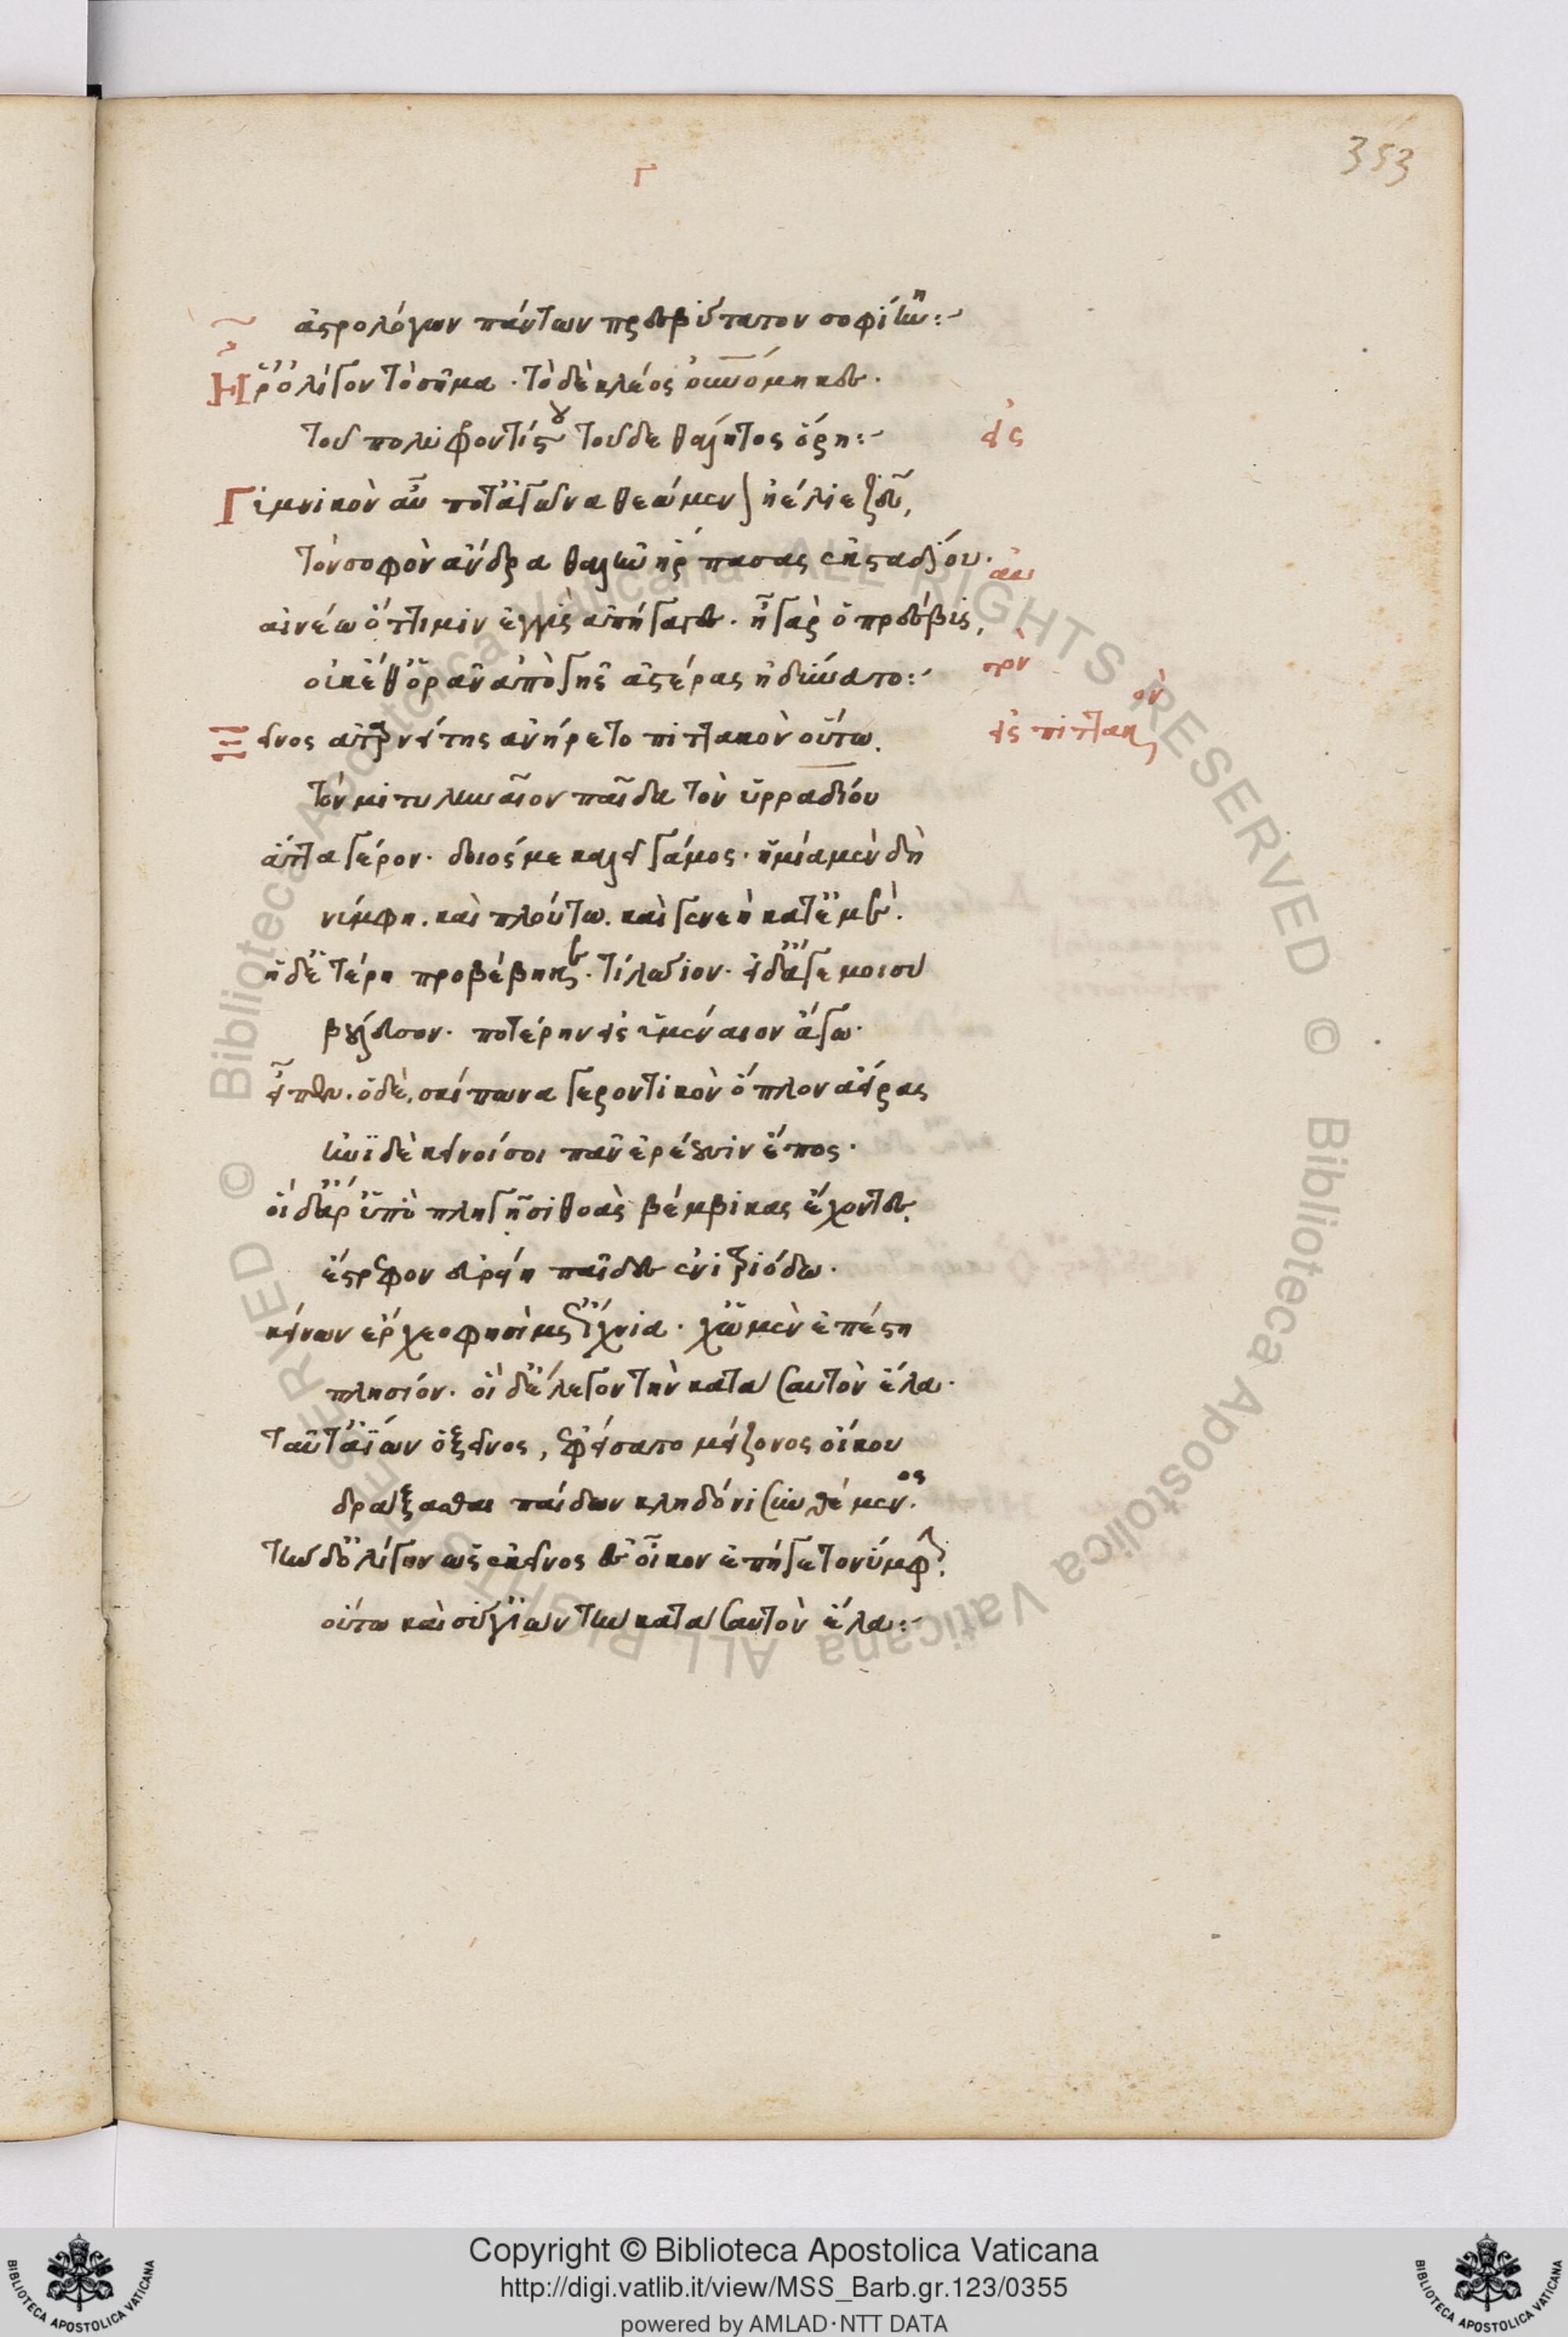 353
γ
ἀστρολόγων πάντων πρεσβύτατον σοφίην:~
Ἦ ῥ' ὀλίγον τὸ σῆμα· τὸ δὲ κλέος οὐρανόμηκες·
τοῦ πολυφροντίστου τοῦδε θάλητος ὅρη:~
εἰς
Γυμνικὸν αὖ ποτ' ἀγῶνα θεώμενον ἠέλιε ζεῦ,
τὸν σοφὸν ἄνδρα θαλῆν ἥρπασας ἐκ σταδίου·
αἰνέω ὅττι μιν ἐγγὺς ἀπήγαγες· ἦ γὰρ ὁ πρέσβυς,
οὐκέθ' ὁρᾶν ἀπὸ γῆς ἀστέρας ἠδύνατο:~
Ξεῖνος ἀταρνείτης ἀνήρετο πιττακὸν οὕτω.
εἰς πιττακὸν
τὸν μιτυληναῖον παῖδα τὸν ὑρραδίου
ἄττα γέρον· δοιός με καλεῖ γάμος· ἡ μία μὲν δὴ
νύμφη. καὶ πλούτω. καὶ γενεῆ κατ' ἐμέ.
ἡ δ' ἑτέρη προβέβηκε· τί λώϊον· εἰ δ' ἄγε μοι σὺ
βούλευσον· ποτέρην εἰς ὑμέναιον ἄγω·
εἶπεν. ὁ δὲ, σκίπωνα γεροντικὸν ὅπλον ἀείρας
ἠνὶ δὲ κεῖνοί σοι πᾶν ἐρέουσιν ἔπος·
οἱ δ' ἄρ' ὑπὸ πληγῆσι θοὰς βέμβικας ἔχοντες,
ἔστρεφον εὐρείη παῖδες ἐνὶ τριόδω·
κείνων ἔρχεο φησὶ μετ' ἴχνια· χὠ μὲν ἐπέστη
πλησίον· οἱ δ' ἔλεγον τὴν κατὰ σαυτὸν ἔλα·
ταῦτ' ἀΐων ὁ ξεῖνος, ἐφείσατο μείζονος οἴκου
δράξασθαι παίδων κληδόνι συνθέμενος.
τὴν δ' ὀλίγην ὡς κεῖνος ἐς οἶκον ἐπήγετο νύμφην.
οὕτω καὶ σύ γ' ἰὼν τὴν κατὰ σαυτὸν ἔλα:~
Copyright © Biblioteca Apostolica Vaticana
http://digi.vatlib.it/view/MSS_Barb.gr.123/0355
powered by AMLAD·NTT DATA